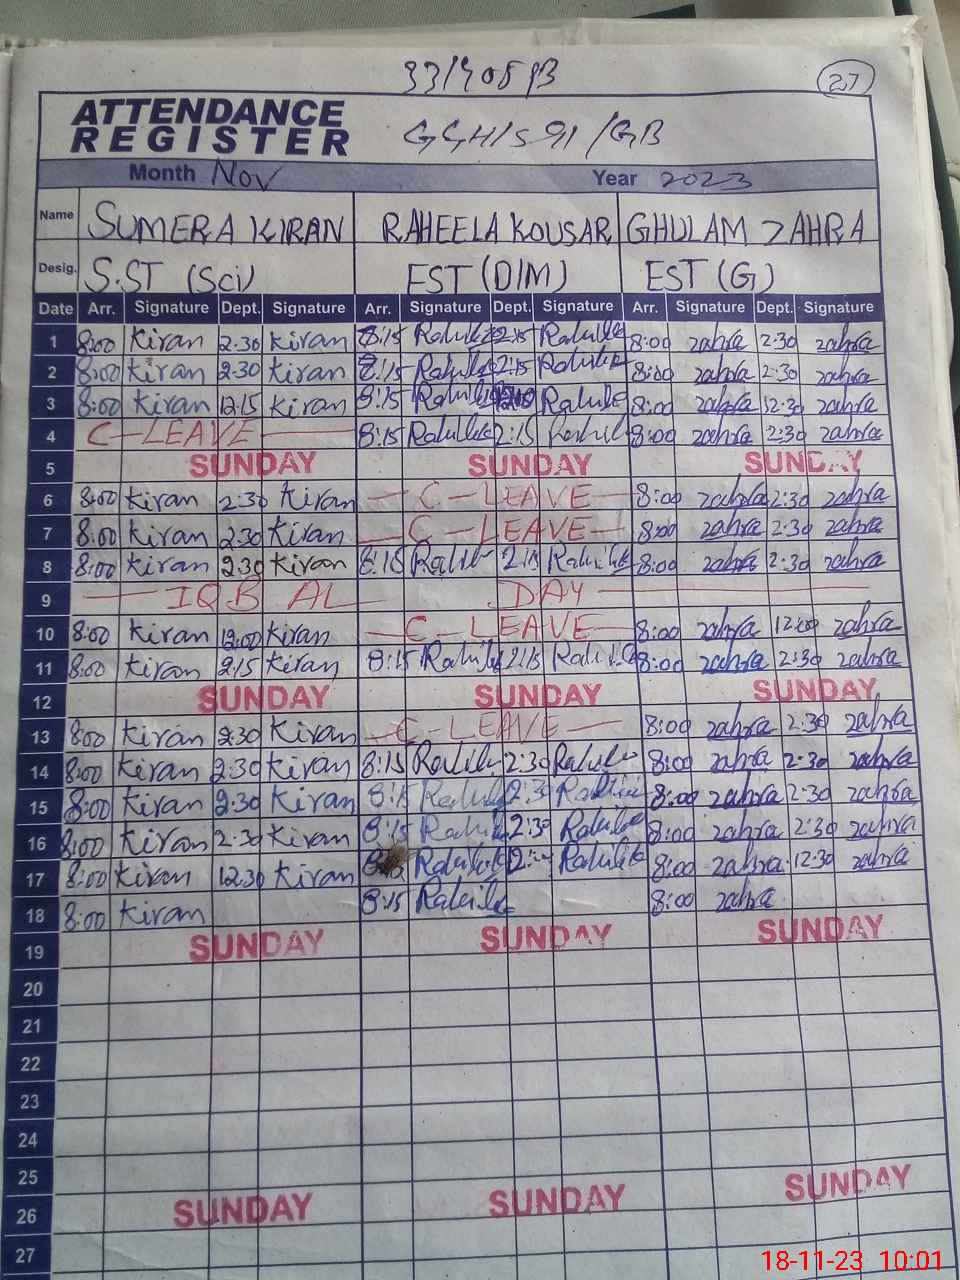 33140598
27
ATTENDANCE
REGISTER
GGHS 91/GB
Month Nov Year 2023
Name SUMERA KIRAN RAHEELA KOUSAR GHULAM ZAHRA
Desig. S.ST (Sci) EST (DIM) EST (G)
Date Arr. Signature Dept. Signature Arr. Signature Dept. Signature Arr. Signature Dept. Signature
1 8:00 Kiran 2:30 Kiran 8:15 2:15 8:00 zahra 2:30 zahra
2 8:00 Kiran 2:30 Kiran 8:15 2:15 8:00 zahra 2:30 zahra
3 8:00 Kiran 12:15 Kiran 8:15 8:00 zahra 12:30 zahra
4 C-LEAVE 8:15 2:15 8:00 zahra 2:30 zahra
5 SUNDAY SUNDAY SUNDAY
6 8:00 Kiran 2:30 Kiran C-LEAVE 8:00 zahra 2:30 zahra
7 8:00 Kiran 2:30 Kiran C-LEAVE 8:00 zahra 2:30 zahra
8 8:00 Kiran 2:30 Kiran 8:15 2:15 8:00 zahra 2:30 zahra
9 IQBAL DAY
10 8:00 Kiran 12:00 Kiran C-LEAVE 8:00 zahra 12:00 zahra
11 8:00 Kiran 2:15 Kiran 8:15 2:15 8:00 zahra 2:30 zahra
12 SUNDAY SUNDAY SUNDAY
13 8:00 Kiran 2:30 Kiran C-LEAVE 8:00 zahra 2:30 zahra
14 8:00 Kiran 2:30 Kiran 8:15 2:30 8:00 zahra 2:30 zahra
15 8:00 Kiran 2:30 Kiran 8:15 2:30 8:00 zahra 2:30 zahra
16 8:00 Kiran 2:30 Kiran 8:15 2:30 8:00 zahra 2:30 zahra
17 8:00 Kiran 12:30 Kiran 8:00 zahra 12:30 zahra
18 8:00 Kiran 8:15 8:00 zahra
19 SUNDAY SUNDAY SUNDAY
20
21
22
23
24
25
26 SUNDAY SUNDAY SUNDAY
27
18-11-23 10:01